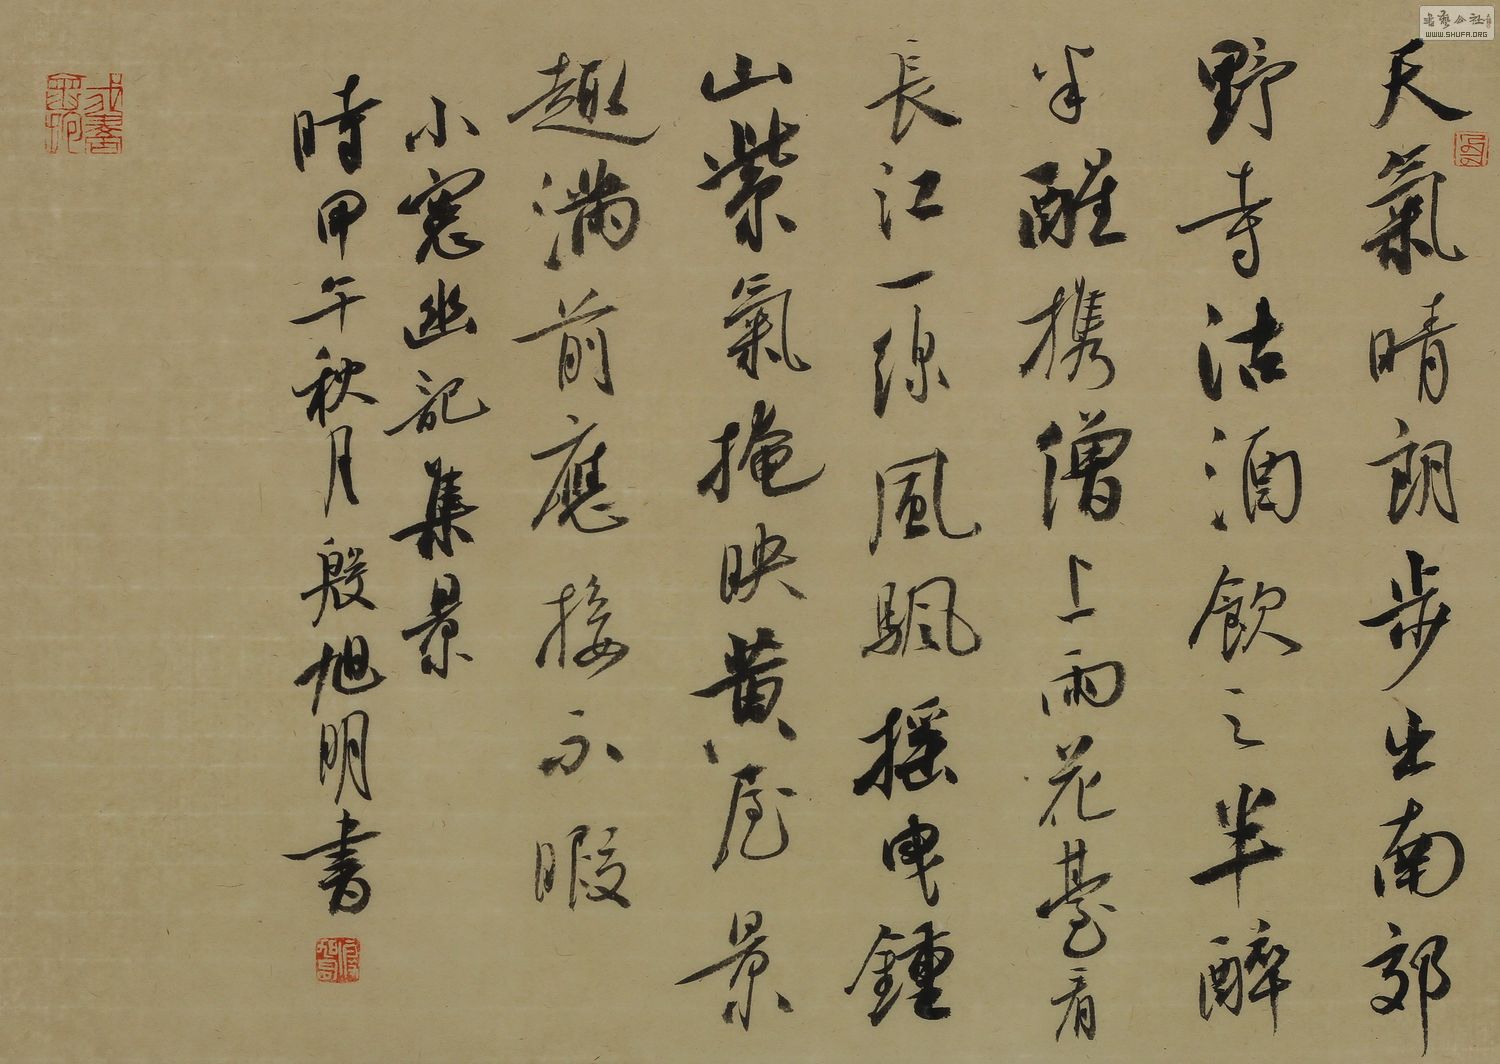 天氣晴朗步出南郊
野寺沽酒飲之半醉
半醒携僧上雨花臺看
長江一線風颿摇曳鍾
山紫氣掩映黄屋景
趣满前應接不暇
小窗幽記集景
時甲午秋月殷旭明書
書藝公社
WWW.SHUFA.ORG